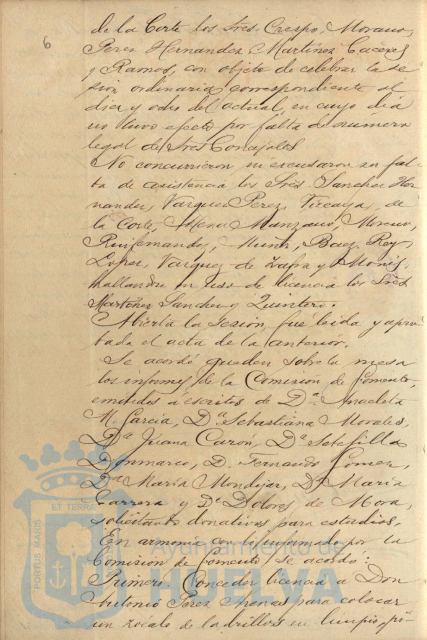 6
de la Corte los Sres. Crespo, Moreno,
Perez Hernandez, Martinez Caceres
y Ramos, con objeto de celebrar la se
sion ordinaria correspondiente al
diez y ocho del actual, en cuyo dia
no tuvo efecto por falta de número
legal de Sres Concejales.
No concurrieron, ni escusaron su fal
ta de asistencia los Sres. Sanchez Her
nandez, Vazquez Perez, Vizcaya, de
la Corte, Mena, Manzano, Moreno,
Ruifernandez, Muñiz, Baez, Rey,
Lopez, Vazquez de Zafra y Monis,
hallandose en uso de licencia los Sres
Martinez Sanchez y Quintero.
Abierta la sesion, fué leida y apro
bada el acta de la anterior.
Se acordó queden sobre la mesa
los informes de la Comision de Fomento,
emitidos á escritos de Dª.
M. Garcia, Dª. Sebastiana Morales,
Dª Juana Dª.
D. Fernando Gomez,
Dª Maria Mondejar, Dª Maria
Carrera y Dª Dolores de Mora,
solicitando donativos para estudios.
En armonia con lo informado por la
Comision de Fomento, se acordó:
Primero. Conceder licencia á Don
Antonio Perez Arenas para colocar
un zocalo de ladrillos en limpio, pi-
PORTUS MARIS ET TERRÆ
Ayuntamiento de
HUELVA